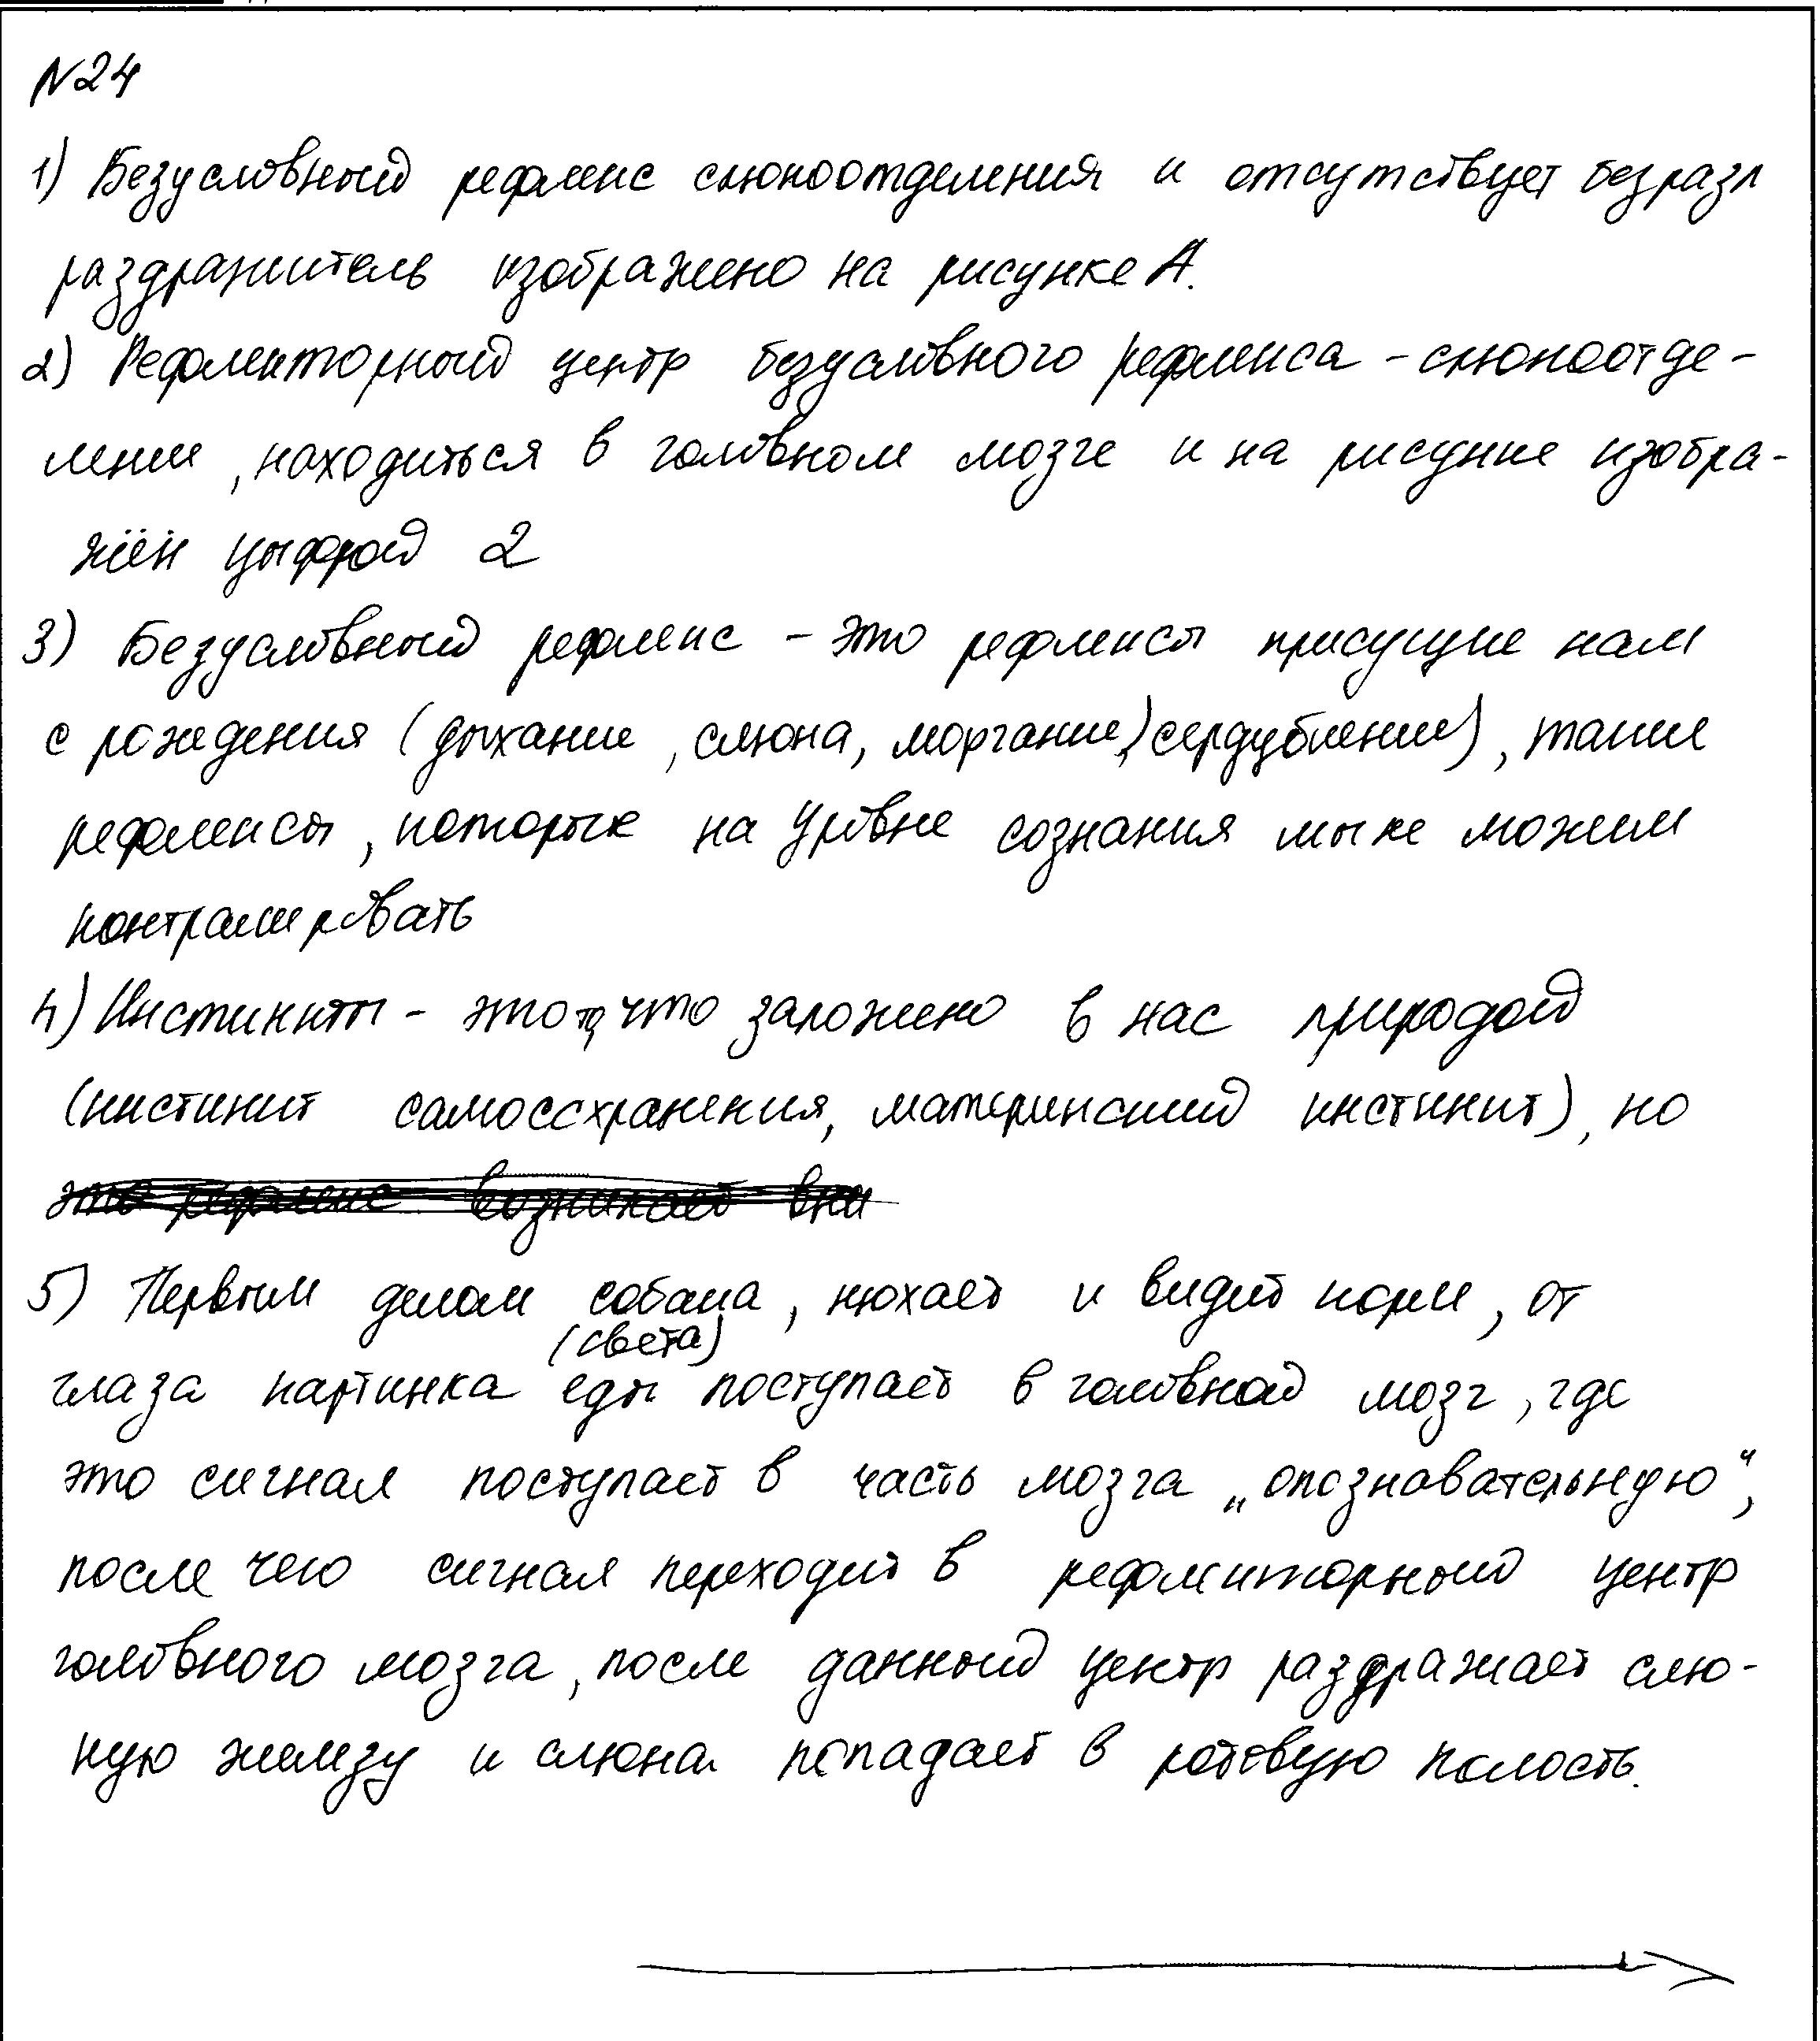 №24
1) Безусловный рефлекс слюноотделения и отсутствует безразл
раздражитель изображено на рисунке А.
2) Рефлекторный центр безусловного рефлекса - слюноотде-
ление, находиться в головном мозге и на рисунке изобра-
жён цыфрой 2
3) Безусловный рефлекс - это рефлексы присущие нам
с рождения (дыхание, слюна, моргание, сердубиение), такие
рефлексы, которые на уровне сознания мы не можем
контралировать
4) Инстинкты - это то, что заложено в нас природой
(инстинкт самосохранения, материнский инстинкт), но
это рефлекс возникает вни
5) Первым делом собака, нюхает и видит корм, от
(света)
глаза картинка еды поступает в головной мозг, где
это сигнал поступает в часть мозга „опознавательную“,
после чего сигнал переходит в рефлекторный центр
головного мозга, после данный центр раздражает слю-
ную железу и слюна попадает в ротовую полость.